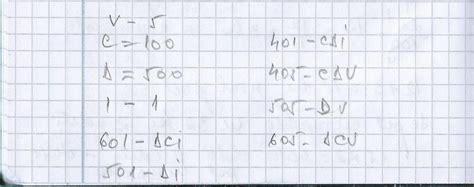 V - 5
C = 100
Δ = 500
1 - 1
601 - ΔCi
501 - Δi
401 - CΔi
405 - CΔV
505 - DV
605 - ΔCV